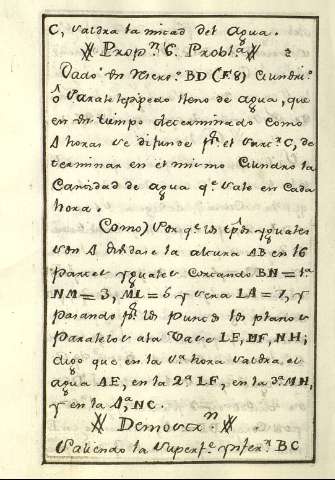 C, saldra la mitad del Agua.
Propn. 6. Probla.
Dado un Micro. BD (F8) Cilindrico.
ô Paralelepipedo lleno de agua, que
en un tiempo determinado como
4 horas se difunde pr. el C, de
terminar en el mismo Cilindro la
Cantidad de agua qe. sale en Cada
hora.
Como) Por qe. los tpos. yguales
son 4 dividase la altura AB en 16
partes yguales Cortando BN = 1a
NM = 3, ML = 5 y sera LA = 7, y
pasando pr. los puntos los planos
Paralelos ala Vase LE, MF, NH;
digo que en la 1a. hora saldra el
agua AE, en la 2a LF, en la 3a MH,
y en la 4a, NC.
Demostrn.
Saliendo la superfe. ynferr. BC